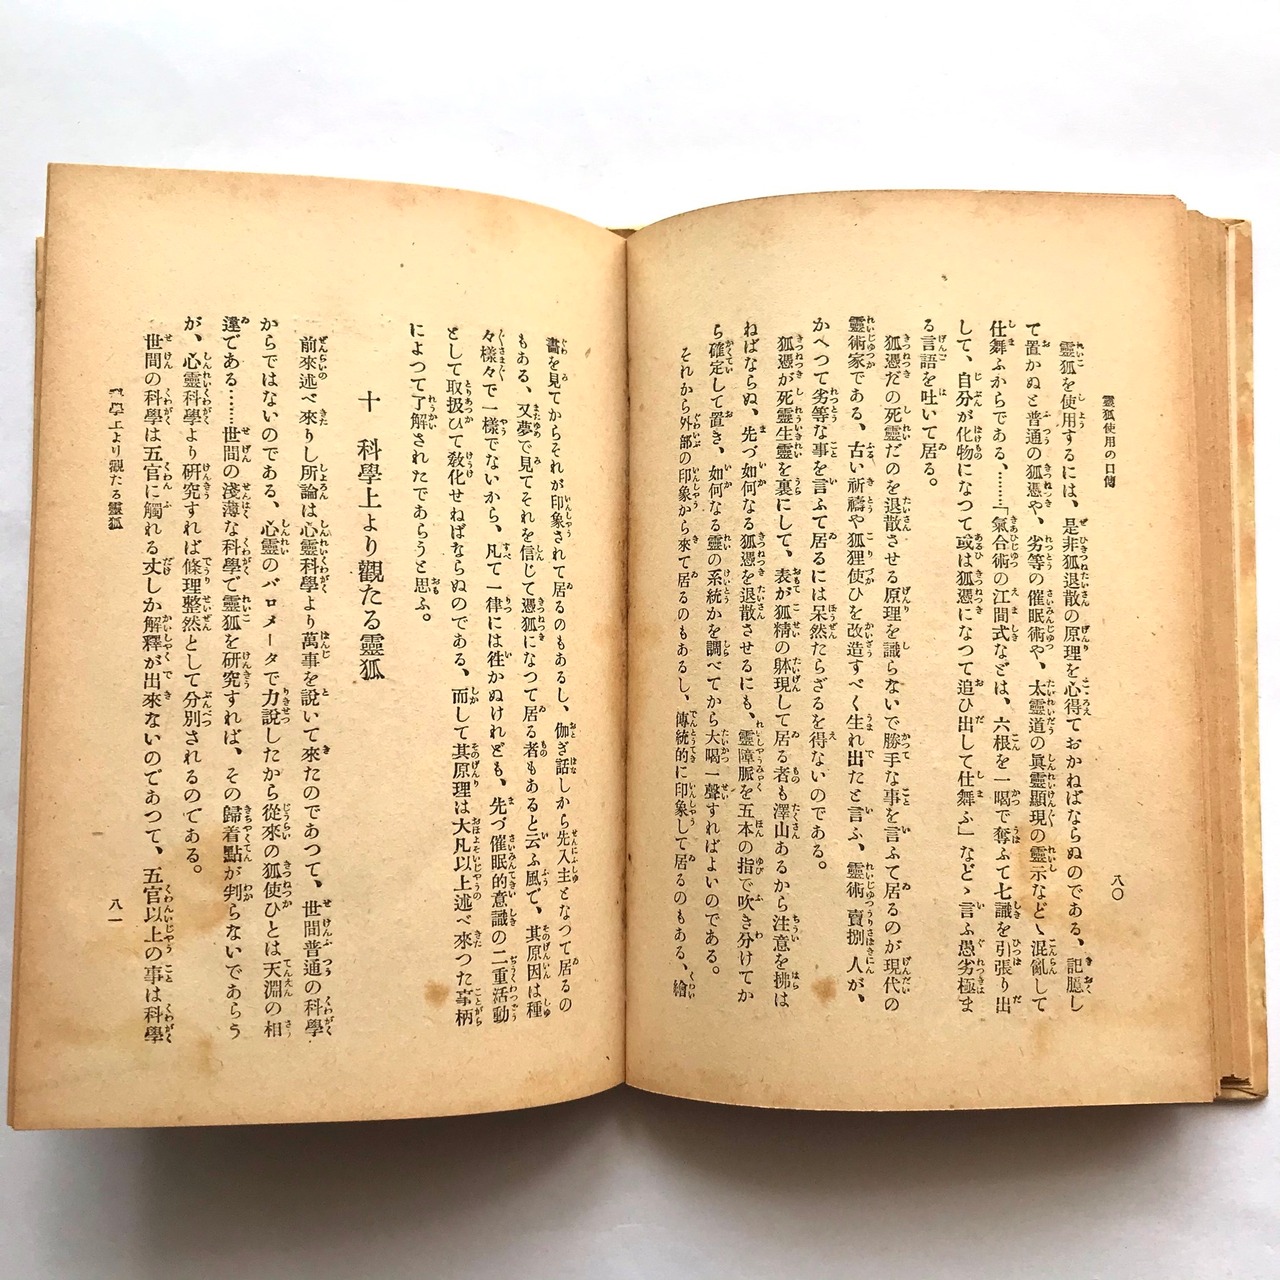 靈狐使用の口傳
八〇
靈狐を使用するには、是非狐退散の原理を心得ておかねばならぬのである、記臆し
て置かぬと普通の狐憑や、劣等の催眠術や、太靈道の眞靈顯現の靈示など〱混亂して
仕舞ふからである、………「氣合術の江間式などは、六根を一喝で奪ふて七識を引張り出
して、自分が化物になつて或は狐憑になつて追ひ出して仕舞ふ」などゝ言ふ愚劣極ま
る言語を吐いて居る。
狐憑だの死靈だのを退散させる原理を識らないで勝手な事を言ふて居るのが現代の
靈術家である、古い祈禱や狐狸使ひを改造すべく生れ出たと言ふ、靈術賣捌人が、
かへつて劣等な事を言ふて居るには呆然たらざるを得ないのである。
狐憑が死靈生靈を裏にして、表が狐精の躰現して居る者も澤山あるから注意を拂は
ねばならぬ、先づ如何なる狐憑を退散させるにも、靈障脈を五本の指で吹き分けてか
ら確定して置き、如何なる靈の系統かを調べてから大喝一聲すればよいのである。
それから外部の印象から來て居るのもあるし、傳統的に印象して居るのもある、繪
畵を見てからそれが印象されて居るのもあるし、伽ぎ話しから先入主となつて居るの
もある、又夢で見てそれを信じて憑狐になつて居る者もあると云ふ風で、其原因は種
々樣々で一樣でないから、凡て一律には徃かぬけれども、先づ催眠的意識の二重活動
として取扱ひて敎化せねばならぬのである、而して其原理は大凡以上述べ來つた事柄
によつて了解されたであらうと思ふ。
十 科學上より觀たる靈狐
前來述べ來りし所論は心靈科學より萬事を說いて來たのであつて、世間普通の科學
からではないのである、心靈のバロメータで力說したから從來の狐使ひとは天淵の相
違である………世間の淺薄な科學で靈狐を研究すれば、その歸着點が判らないであらう
が、心靈科學より研究すれば條理整然として分別されるのである。
世間の科學は五官に觸れる丈しか解釋が出來ないのであつて、五官以上の事は科學
學上より觀たる靈狐
八一